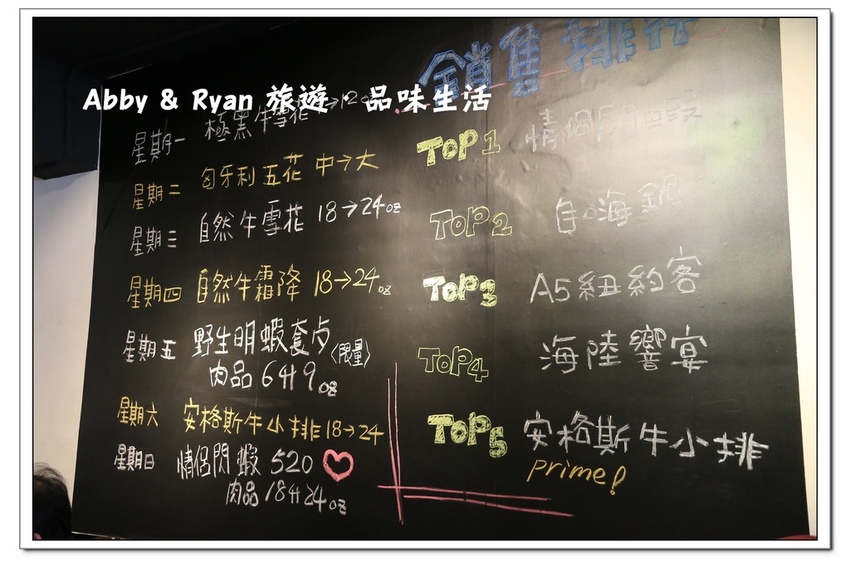 銷售排行
Abby & Ryan 旅遊．品味生活
星期一 極黑牛雪花
星期二 匈牙利五花 中→大
星期三 自然牛雪花 18→24oz
星期四 自然牛霜降 18→24oz
星期五 野生明蝦套夕〈限量〉
肉品 6 9oz
星期六 安格斯牛小排 18→24
星期日 情侶閃蝦 520 ♡
肉品 18 24oz
TOP1 情侶閃蝦
TOP2 海鍋
TOP3 A5紐約客
TOP4 海陸饗宴
TOP5 安格斯牛小排
prime!